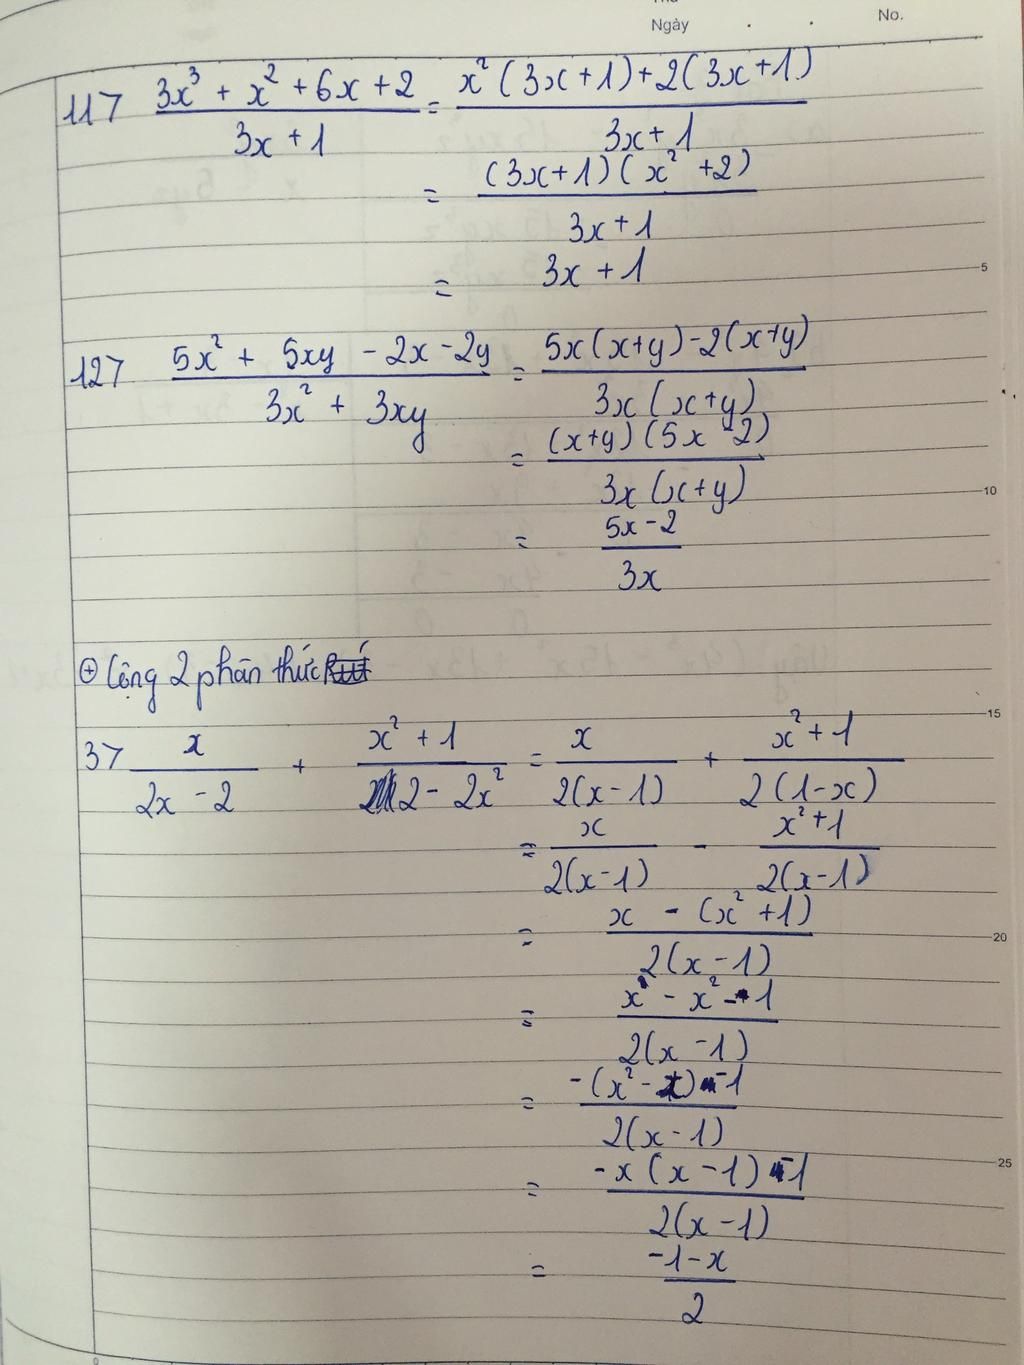 Ngày . . No.
11> (3x³ + x² + 6x + 2)/(3x + 1) = (x²(3x+1)+2(3x+1))/(3x+1)
= ((3x+1)(x² +2))/(3x+1)
= 3x + 1
5
12> (5x² + 5xy - 2x - 2y)/(3x² + 3xy) = (5x(x+y)-2(x+y))/(3x(x+y))
= ((x+y)(5x-2))/(3x(x+y))
10
= (5x-2)/(3x)
⊕ Cộng 2 phân thức
15
3> x/(2x - 2) + (x² + 1)/(2 - 2x²) = x/(2(x-1)) + (x²+1)/(2(1-x))
= x/(2(x-1)) - (x²+1)/(2(x-1))
= (x - (x² +1))/(2(x-1))
20
= (x - x² - 1)/(2(x-1))
= (-(x² - x) - 1)/(2(x-1))
25
= (-x(x-1) - 1)/(2(x-1))
= (-1-x)/2